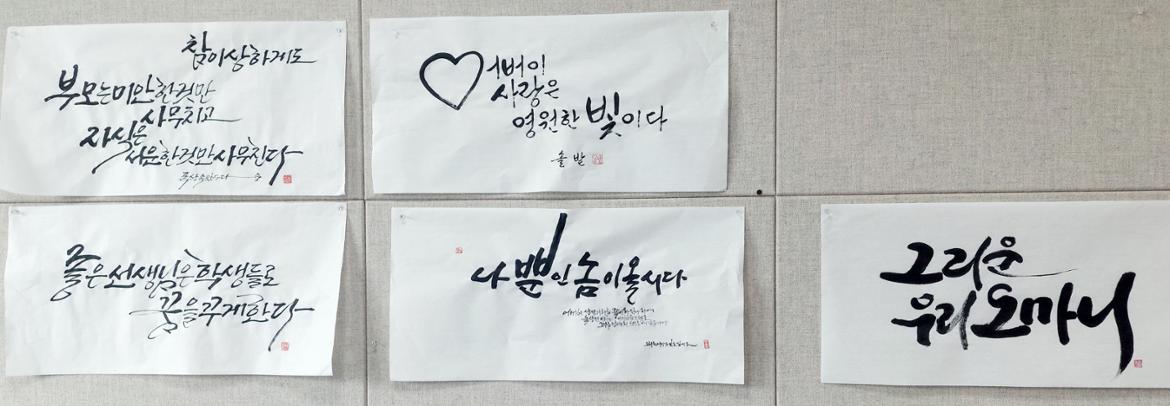 참 이상하게도
부모는 미안한 것만
사무치고
자식은
서운한 것만 사무친다
어버이
사랑은
영원한 빛이다
솔발
좋은 선생님은 학생들로
꿈을 꾸게 한다
나 뿐인 놈이올시다
그리운
우리 오마니